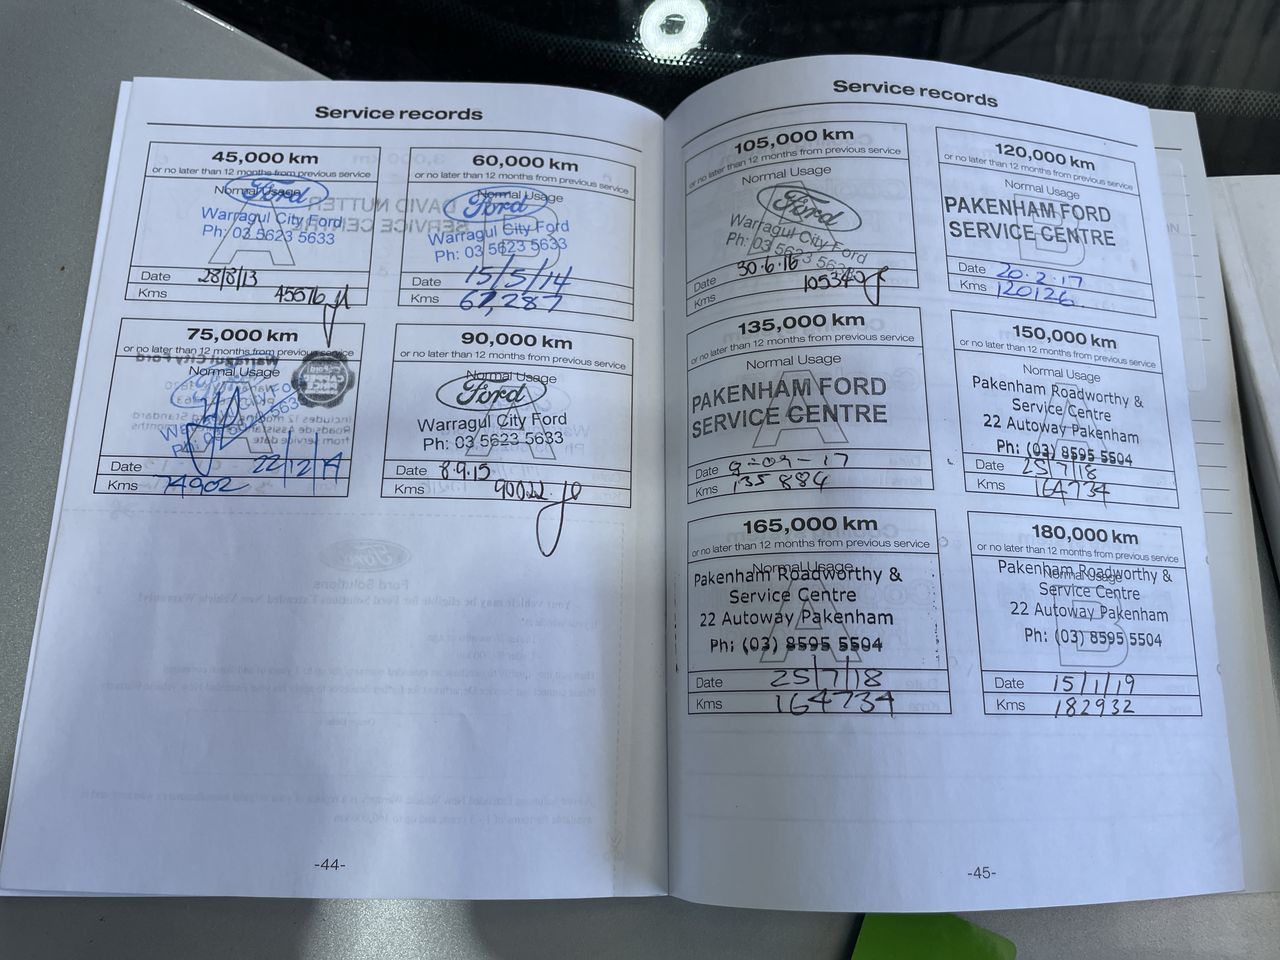 Service records
45,000 km
or no later than 12 months from previous service
Normal Usage
Ford
Warragul City Ford
Ph: 03 5623 5633
A
Date 28/8/13
Kms 45576
60,000 km
or no later than 12 months from previous service
Normal Usage
Ford
Warragul City Ford
Ph: 03 5623 5633
B
Date 15/5/14
Kms 67,287
75,000 km
or no later than 12 months from previous service
Normal Usage
A
Date 22/12/14
Kms 74902
90,000 km
or no later than 12 months from previous service
Normal Usage
Ford
Warragul City Ford
Ph: 03 5623 5533
A
Date 8.9.15
Kms 90022
-44-
Service records
105,000 km
or no later than 12 months from previous service
Normal Usage
Ford
Warragul City Ford
Ph: 03 5623 5633
Date 30.6.16
Kms 105340
120,000 km
or no later than 12 months from previous service
Normal Usage
PAKENHAM FORD
SERVICE CENTRE
B
Date 20.2.17
Kms 120126
135,000 km
or no later than 12 months from previous service
Normal Usage
PAKENHAM FORD
SERVICE CENTRE
A
Date 9-09-17
Kms 135884
150,000 km
or no later than 12 months from previous service
Normal Usage
Pakenham Roadworthy &
Service Centre
22 Autoway Pakenham
Ph: (03) 8595 5504
A
Date 25/7/18
Kms 164734
165,000 km
or no later than 12 months from previous service
Normal Usage
Pakenham Roadworthy &
Service Centre
22 Autoway Pakenham
Ph: (03) 8595 5504
A
Date 25/7/18
Kms 164734
180,000 km
or no later than 12 months from previous service
Normal Usage
Pakenham Roadworthy &
Service Centre
22 Autoway Pakenham
Ph: (03) 8595 5504
B
Date 15/1/19
Kms 182932
-45-